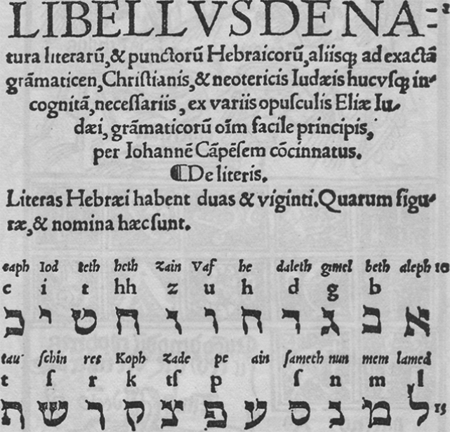 LIBELLVS DE NA-
tura literarũ, & punctorũ Hebraicorũ, aliisq; ad exactã
grãmaticen, Christianis, & neotericis Iudæis hucvsq; in-
cognitã, necessariis, ex variis opusculis Eliæ Iu-
dæi, grãmaticorũ oĩm facile principis,
per Iohannẽ Cãpẽsem cõcinnatus.
De literis.
Literas Hebræi habent duas & viginti. Quarum figu-
ræ, & nomina hæc sunt.
caph Iod teth heth zain Vaf he daleth gimel beth aleph 10
c i t hh z u h d g b
א ב ג ד ה ו ז ח ט י כ
tau schin res Koph zade pe ain samech nun mem lamed
t ſ r k tſ p ſ n m l
ל מ נ ס ע פ צ ק ר ש ת 15